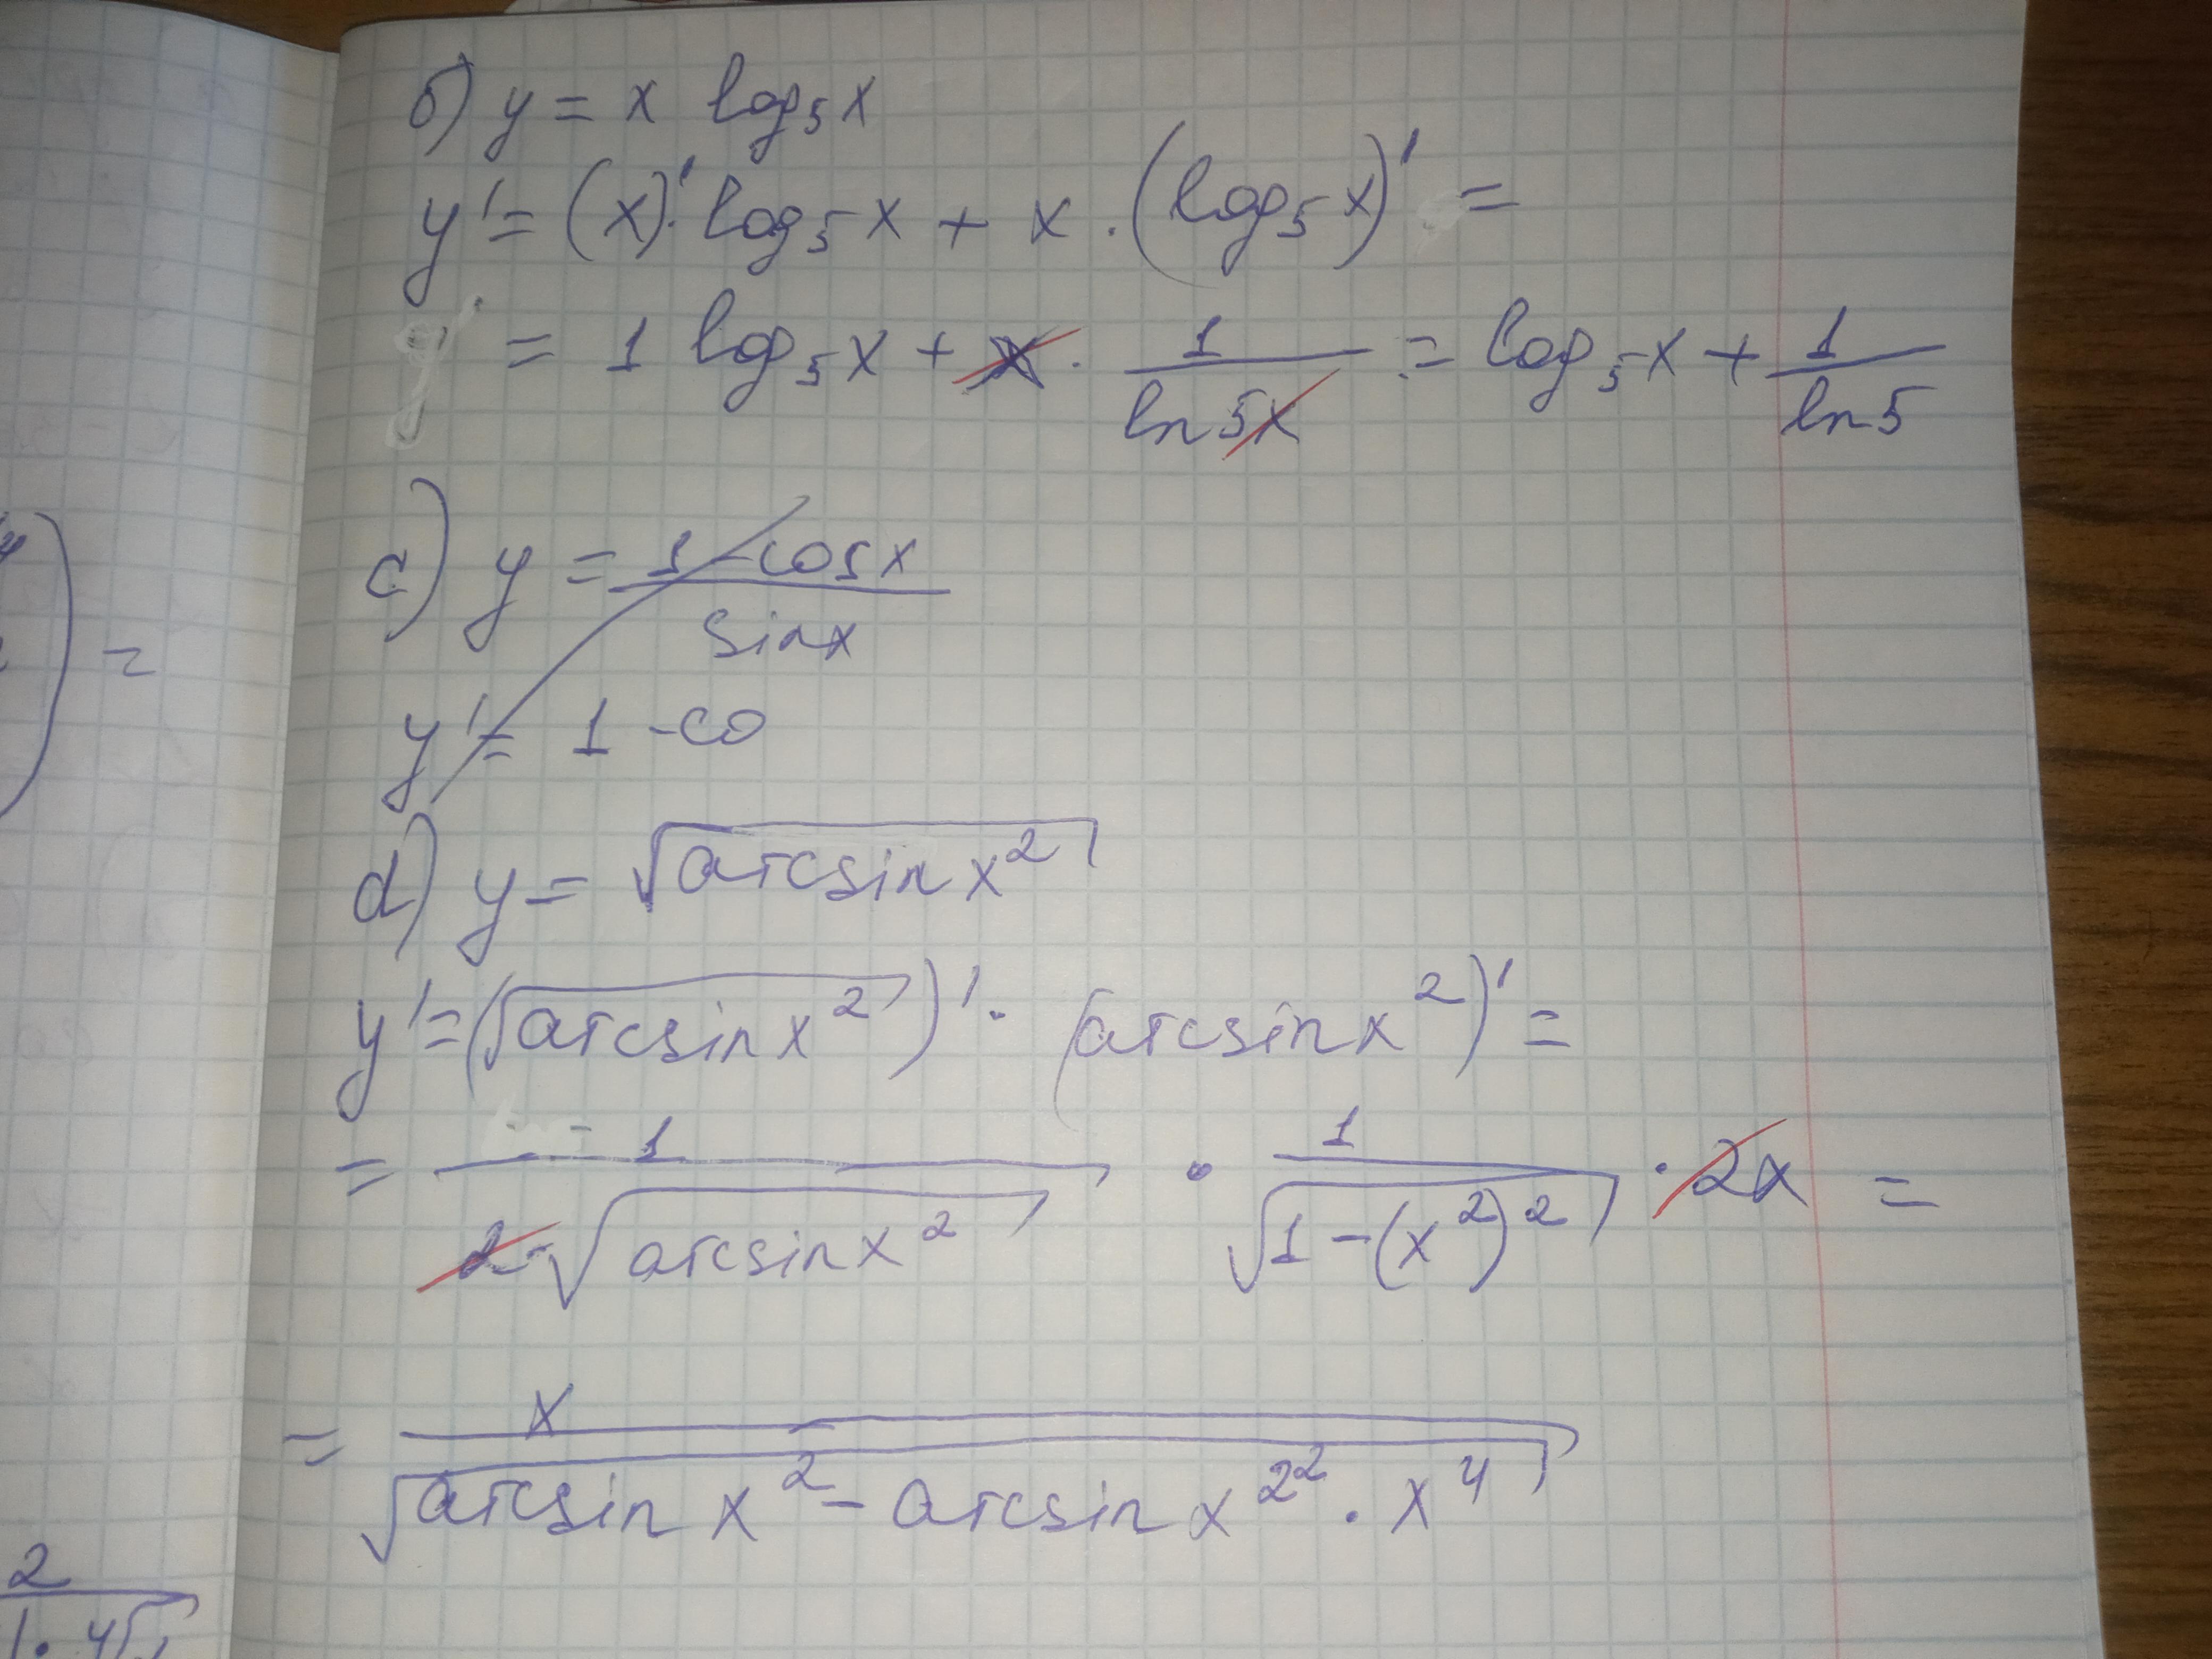 б) y = x log₅x
y' = (x)'·log₅x + x·(log₅x)' =
= 1 log₅x + x · 1/ln5x = log₅x + 1/ln5
c) y = 1-cosx/sinx
y' = 1 -co
d) y = √(arcsin x²)
y' = (√(arcsin x²))' · (arcsin x²)' =
= 1/(2·√(arcsin x²)) · 1/√(1-(x²)²) · 2x =
= x/√(arcsin x² - arcsin x^2² · x⁴)
) =
2
1 · 4√